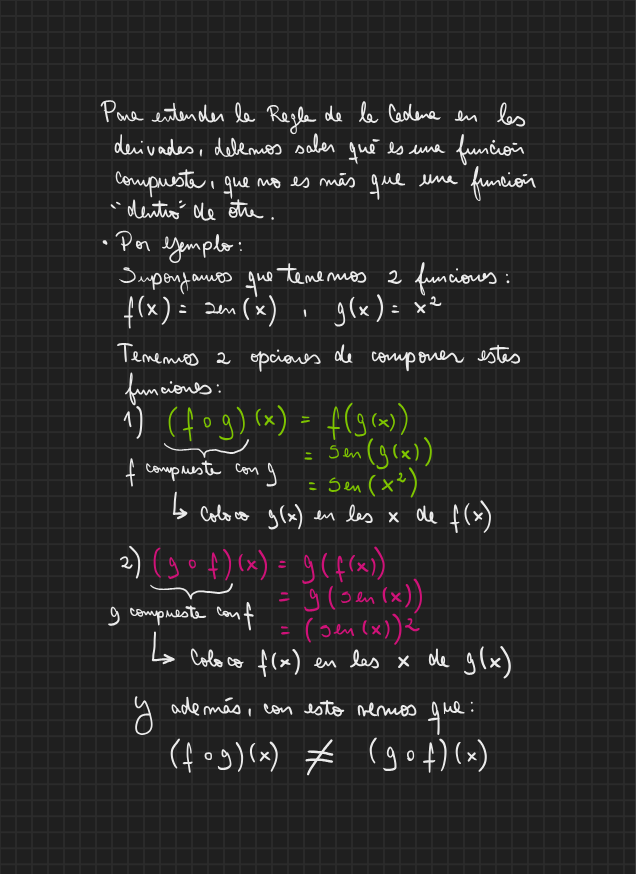 Para entender la Regla de la Cadena en las
derivadas, debemos saber qué es una función
compuesta, que no es más que una función
"dentro" de otra.
• Por ejemplo:
Supongamos que tenemos 2 funciones:
f(x) = sen(x) , g(x) = x²
Tenemos 2 opciones de componer estas
funciones:
1) (f ∘ g)(x) = f(g(x))
= sen(g(x))
f compuesta con g
= sen(x²)
↳ Coloco g(x) en las x de f(x)
2) (g ∘ f)(x) = g(f(x))
= g(sen(x))
g compuesta con f
= (sen(x))²
↳ Coloco f(x) en las x de g(x)
Y además, con esto vemos que:
(f ∘ g)(x) ≠ (g ∘ f)(x)